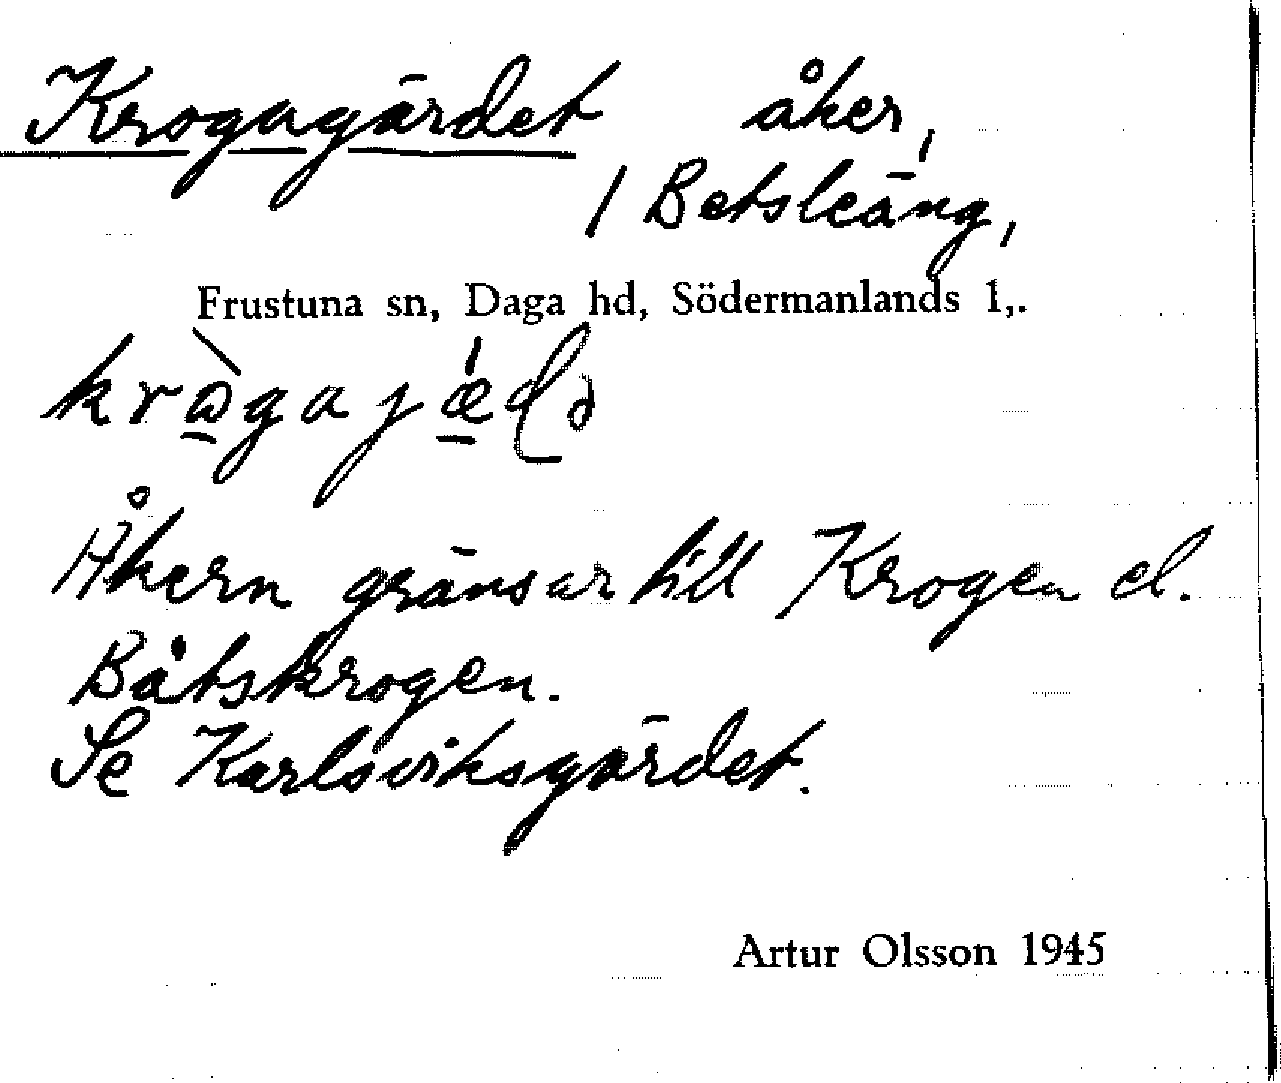 Krogagärdet åker,
/ Betsleäng,
Frustuna sn, Daga hd, Södermanlands l,.
Åkern gränsar till Krogen el.
Båtskrogen.
Se Karlsviksgärdet.
Artur Olsson 1945